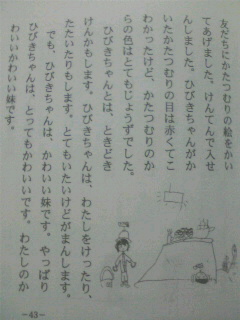 友だちにかたつむりの絵をかい
てあげました。けんてんで入せ
んしました。ひびきちゃんがか
いたかたつむりの目は赤くてこ
わかったけど、かたつむりのか
らの色はとてもじょうずでした。
ひびきちゃんとは、ときどき
けんかもします。ひびきちゃんは、わたしをけったり、
たたいたりもします。とてもいたいけどがまんします。
でも、ひびきちゃんは、かわいい妹です。やっぱり
ひびきちゃんは、とってもかわいいです。わたしのか
わいいかわいい妹です。
-43-